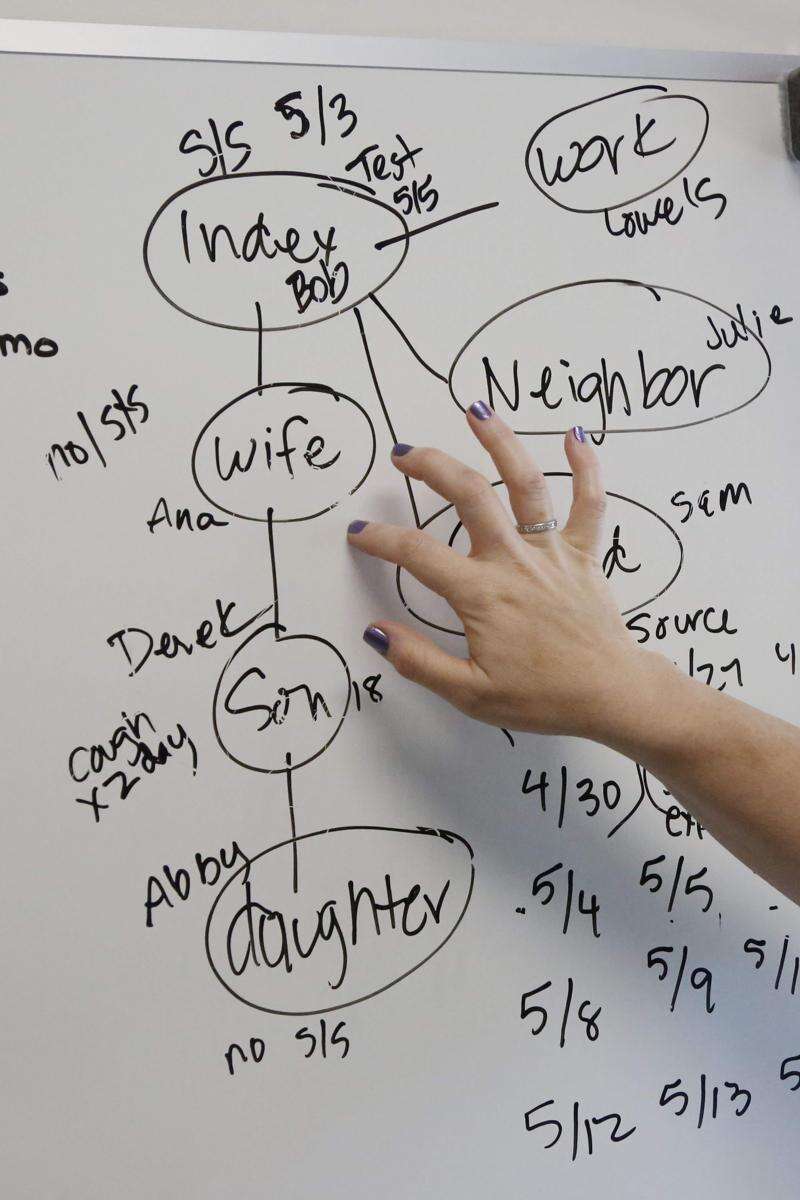 S/S 5/3
Test
5/5
Index
Bob
work
Lowe's
Julie
Neighbor
mo
no/S/S
wife
Ana
Sam
source
Derek
Son 18
cough
x2 day
4/30
Abby
daughter
no S/S
5/4 5/5
5/8 5/9
5/12 5/13